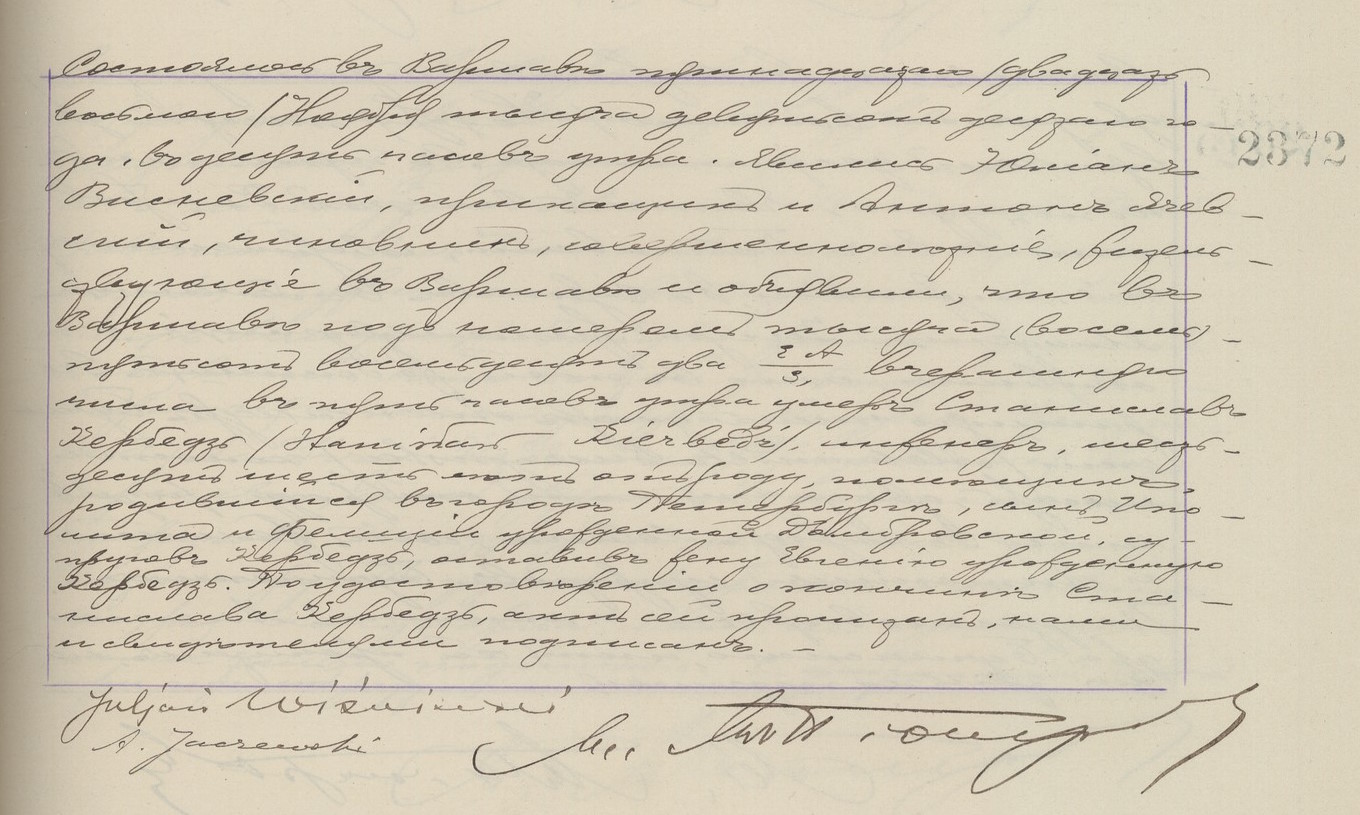 Состоялось въ Варшавѣ пятнадцатаго /двадцать
восьмого/ Ноября тысяча девятьсотъ десятаго го-
да, въ десять часовъ утра. Явились Юліанъ
2372
Висневскій, приказчикъ и Антонъ Ячев-
скій, чиновникъ, совершеннолѣтніе, житель-
ствующіе въ Варшавѣ и объявили, что въ
Варшавѣ подъ номеромъ тысяча (восемь)
пятьсотъ восемьдесятъ два вчерашняго
числа въ пять часовъ утра умеръ Станиславъ
Кербедзь /Stanisław Kierbedź/, инженеръ, шесть-
десятъ шесть лѣтъ отъ роду,
родившійся въ городѣ Петербургѣ, сынъ Ипо-
лита и Фелиціи урожденной Домбровской, су-
пруговъ Кербедзь, оставивъ жену Евгенію урожденную
Кербедзь. По удостовѣреніи о кончинѣ Ста-
нислава Кербедзь, актъ сей прочитанъ, нами
и свидѣтелями подписанъ. -
Juljan Wiśniewski
A. Jaczewski